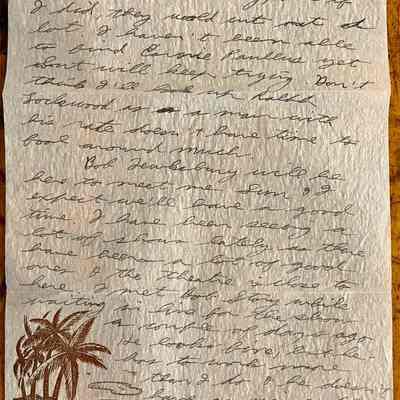 I did, they would cut out a
lot. I haven't been able
to find Connie Paullus yet
but will keep trying. Don't
think I'll look up Ralph
Lockwood as a man with
his rate doesn't have time to
fool around much.
Bob Tewksbury will be
here to meet me Sun, & I
expect we'll have a good
time. I have been seeing a
lot of shows lately, as there
have been a lot of good
ones & the theatre is close to
here. I met Bob Story while
waiting in line for the show
a couple of days ago.
He looks fine, but he
has to work more
than I do & he doesn't